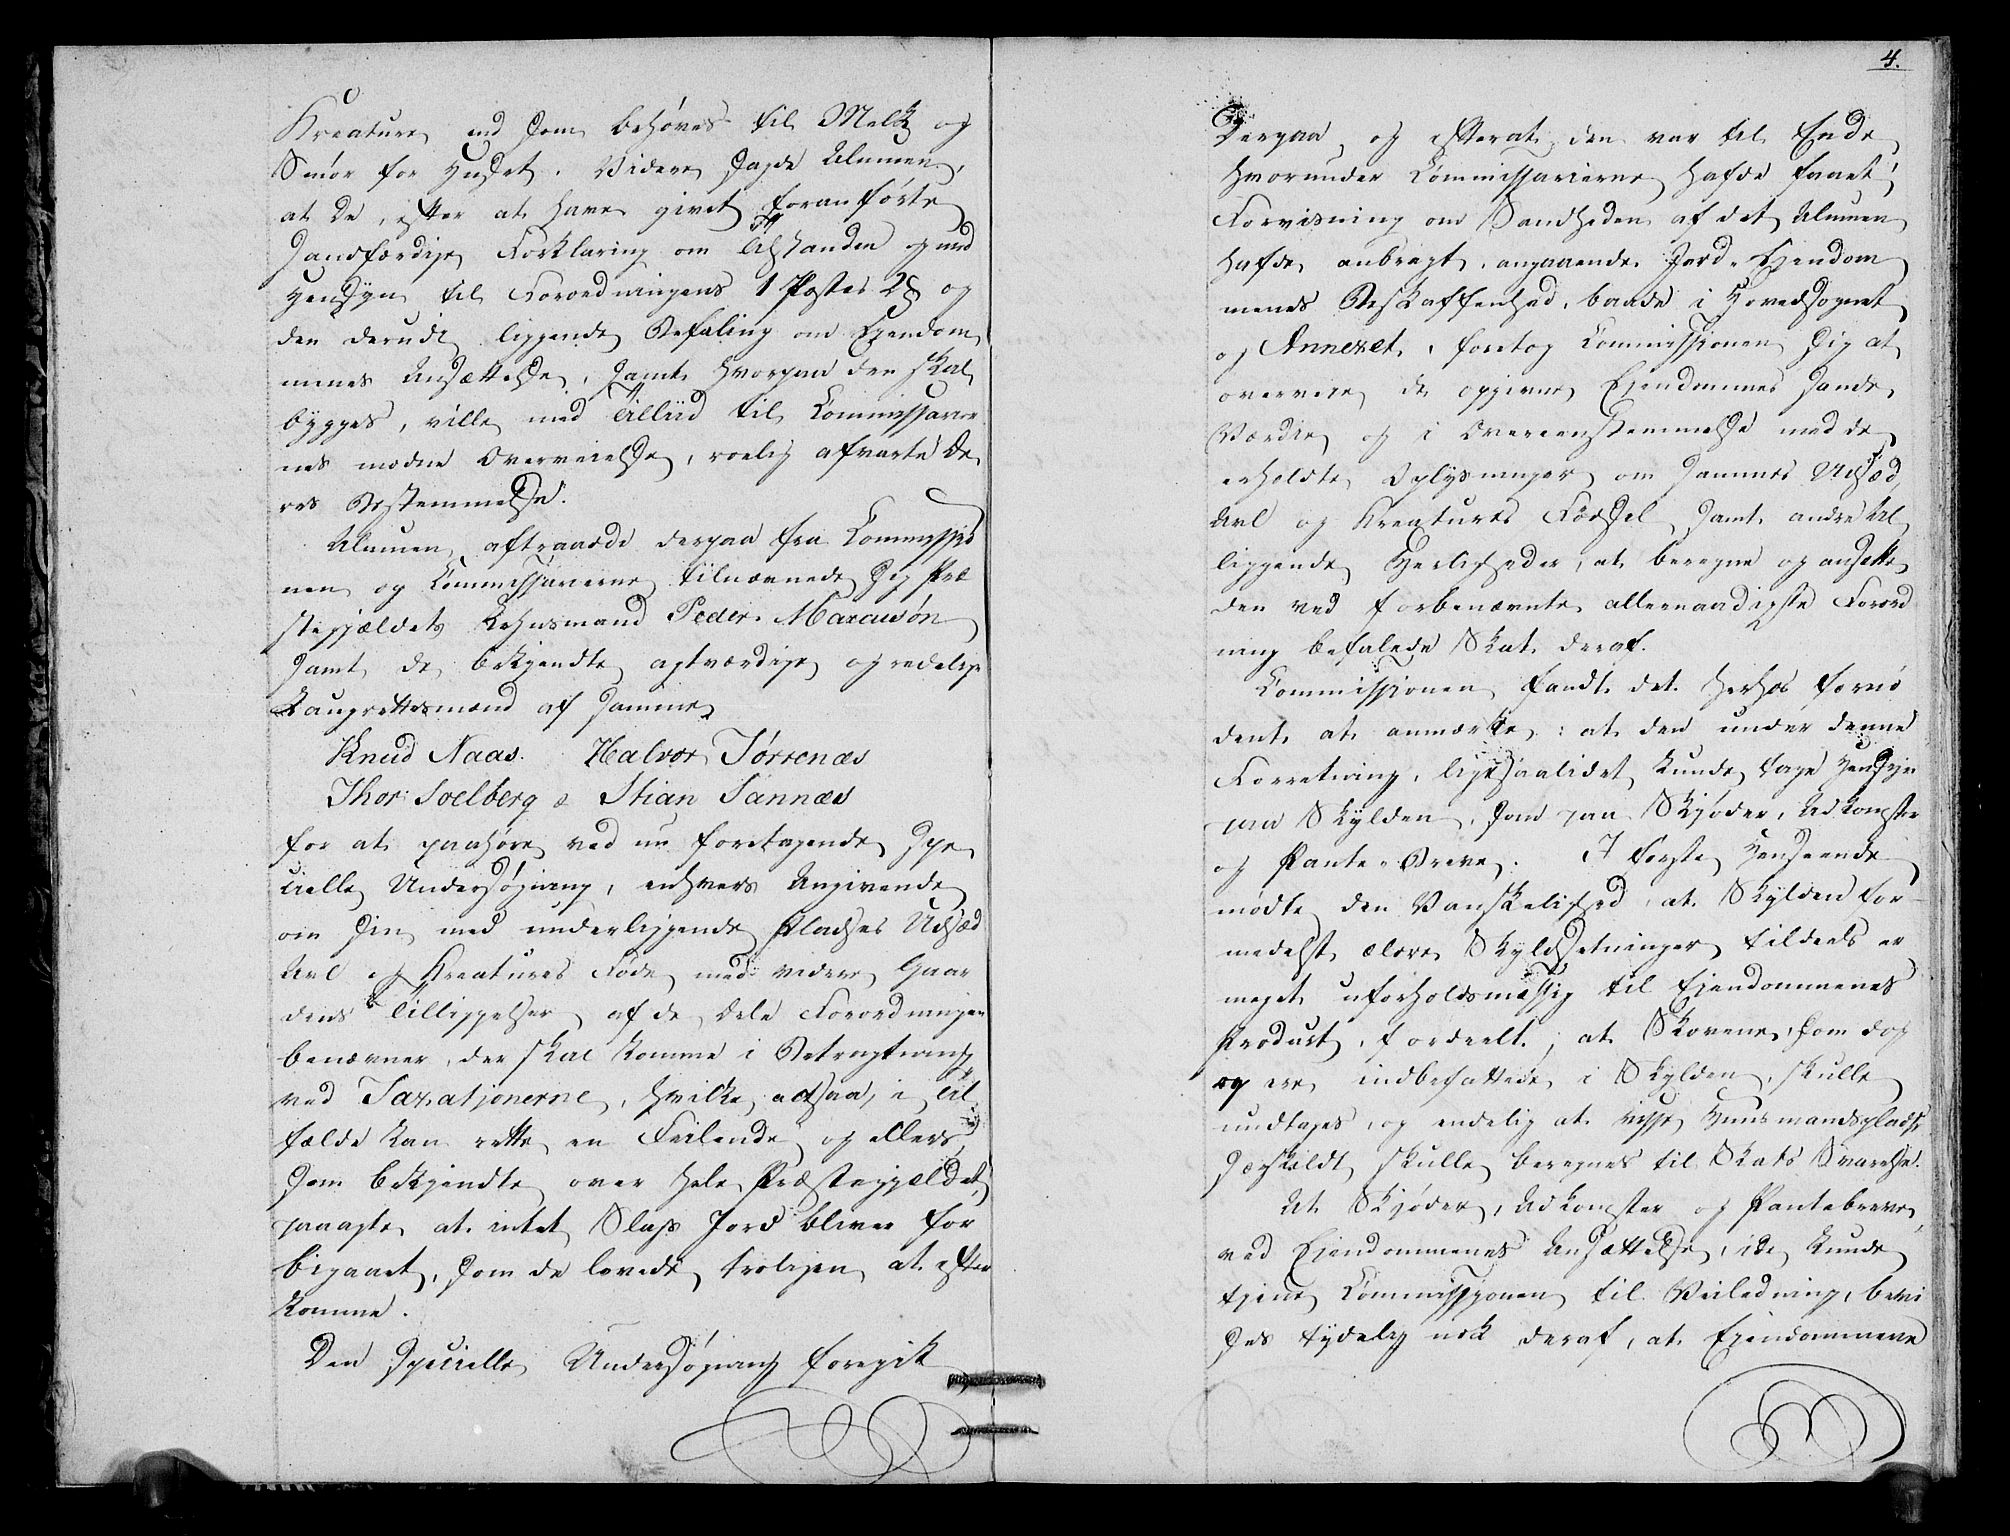 Kreature, end som behøves til Melk og
Smør for Huset. Videre sagde Almuen,
at de, efter at have givet foranførte
sandfærdige Forklaring om Tilstanden og med
Hensyn til Forordningens 1 Postes 2 § og
den derudi liggende Befaling om Ejendom,
menes Ansættelse, samt hvorpaa den skal
bygges, ville med Tilliid til Commissarier
nes modne Overveielse, roelig afvarte De,
res Bestemmelse.
Almuen aftraadde derpaa fra Commissio
nen og Commissarierne tilnævnede sig Præ
stegjældets Lehnsmand Peder Marcusøn
samt de bekjendte, agtværdige og redelige
Laugrettesmænd af samme
Knud Naas. Halvor Tørrenæs
Thor Soelberg & Stian Sannæs
for at paahøre ved nu foretagende spe,
cielle Undersøgning, enhvers Angivende
om sin med underliggende Pladses Udsæd
Avl og Kreatures Føde, med videre Gaar
dens Tilliggelser, af de Dele Forordningen
benævner, der skal komme i Betragtning
ved Taxationerne, hvilke, altsaa, i Til,
fælde kan rette en Feilende, og ellers,
som bekjendte over hele Præstegjældet,
paaagte, at intet Slags Jord bliver for
bigaaet, som de lovede troligen at efter
komme.
Den specielle Undersøgning foregik
4.
Derpaa, og efterat den var til Ende,
hvorunder Commissarierne hafde faaet
Forvisning om Sandheden af det Almuen
hafde anbragt, angaaende Jord-Ejendom
menes Beskaffenhed, baade i Hovedsognet
og Annexet, foretog Commissionen sig at
overveie de opgivne Ejendommes sande
Værdie, og i Overeensstemmelse med de
erholdte Oplysninger om sammes Udsæd,
Avl og Kreatures Fødsel, samt andre til,
liggende Herligheder, at beregne og ansætte
den ved forbenævnte allernaadigste Forord
ning befalede Skat deraf.
Commissionen fandt det herhos fornø
dent at anmærke: at den under denne
Forretning, ligesaalidet kunde tage Hensyn
paa Skylden, som paa Skjøder, Adkomster
og Pante-Breve. I første Henseende
mødte den Vanskelighed, at Skylden for-
medelst ældre Skyldsetninger tildeels er
meget uforholdsmæssig til Ejendommenes
Product, fordeelt; at Skovene, som dog
og ere indbefattede i Skylden, skulle
undtages, og endelig at visse Huusmandspladse
særskildt skulle beregnes til Skats Svarelse.
At Skjøder, Adkomster og Pantebreve,
ved Ejendommenes Ansættelse, ikke kunde
tjene Commissionen til Veiledning, bevi
ses tydelig nok deraf, at Ejendommene